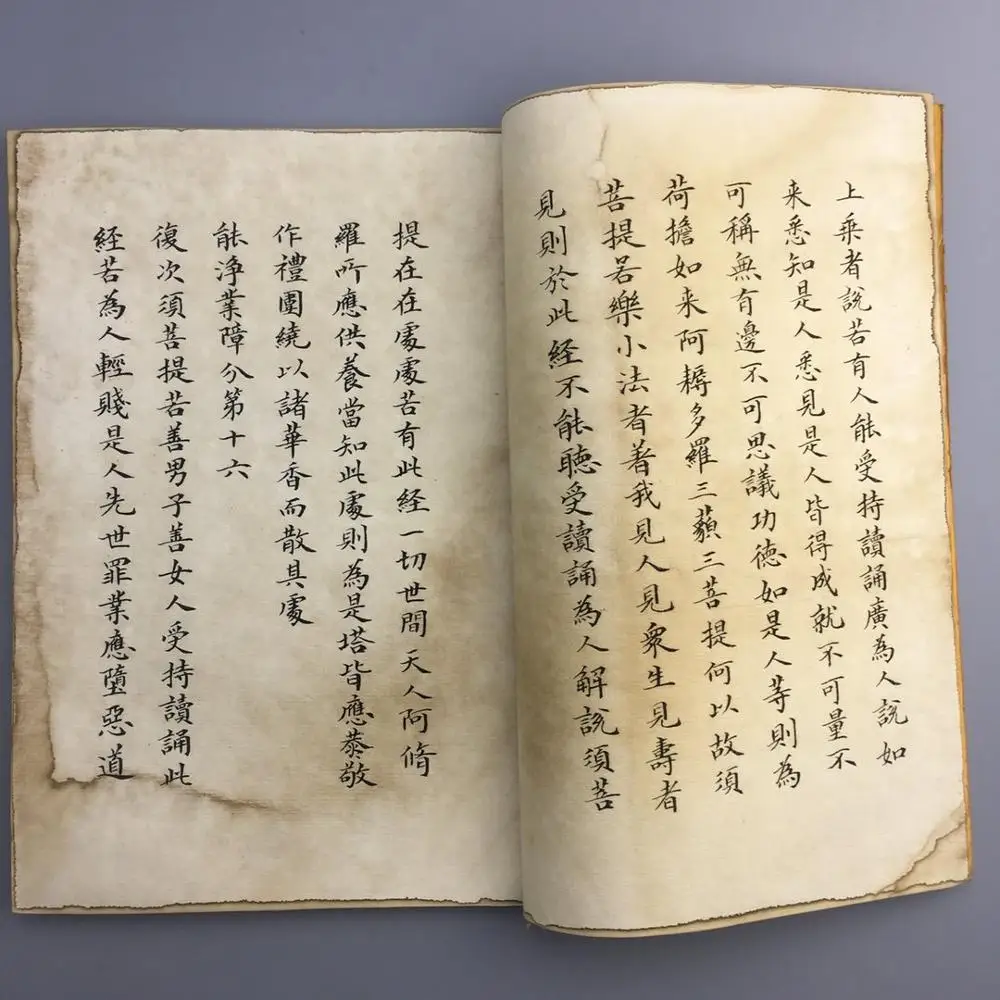 上乘者說若有人能受持讀誦廣為人說如
来悉知是人悉見是人皆得成就不可量不
可稱無有邊不可思議功德如是人等則為
荷擔如来阿耨多羅三藐三菩提何以故須
菩提若樂小法者著我見人見衆生見壽者
見則於此経不能聴受讀誦為人解說須菩
提在在處處若有此経一切世間天人阿脩
羅所應供養當知此處則為是塔皆應恭敬
作禮圍繞以諸華香而散其處
能淨業障分第十六
復次須菩提若善男子善女人受持讀誦此
経若為人輕賤是人先世罪業應墮惡道